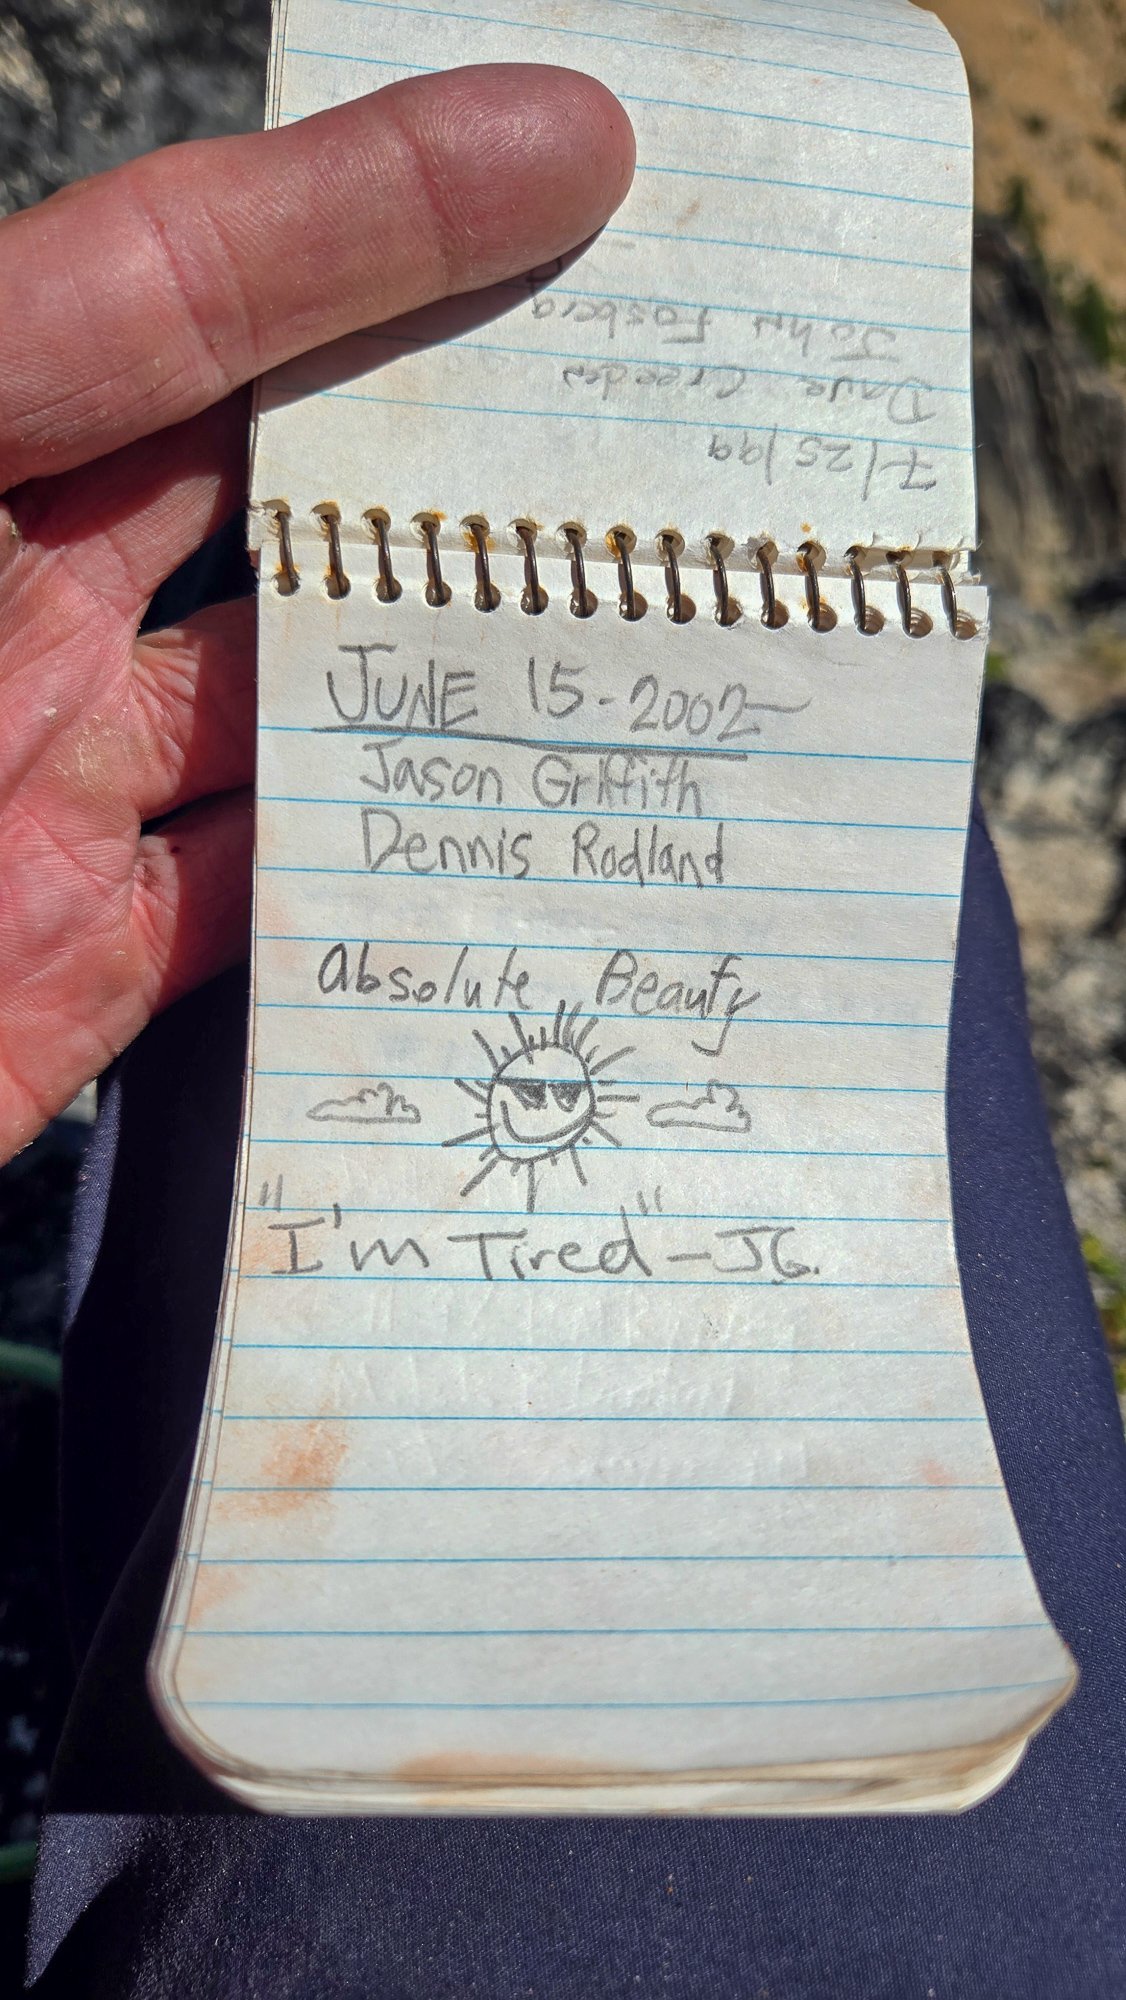 7/25/99
Dave Creeden
John Fosberg
JUNE 15-2002
Jason Griffith
Dennis Rodland
absolute Beauty
"I'm Tired" - JG.